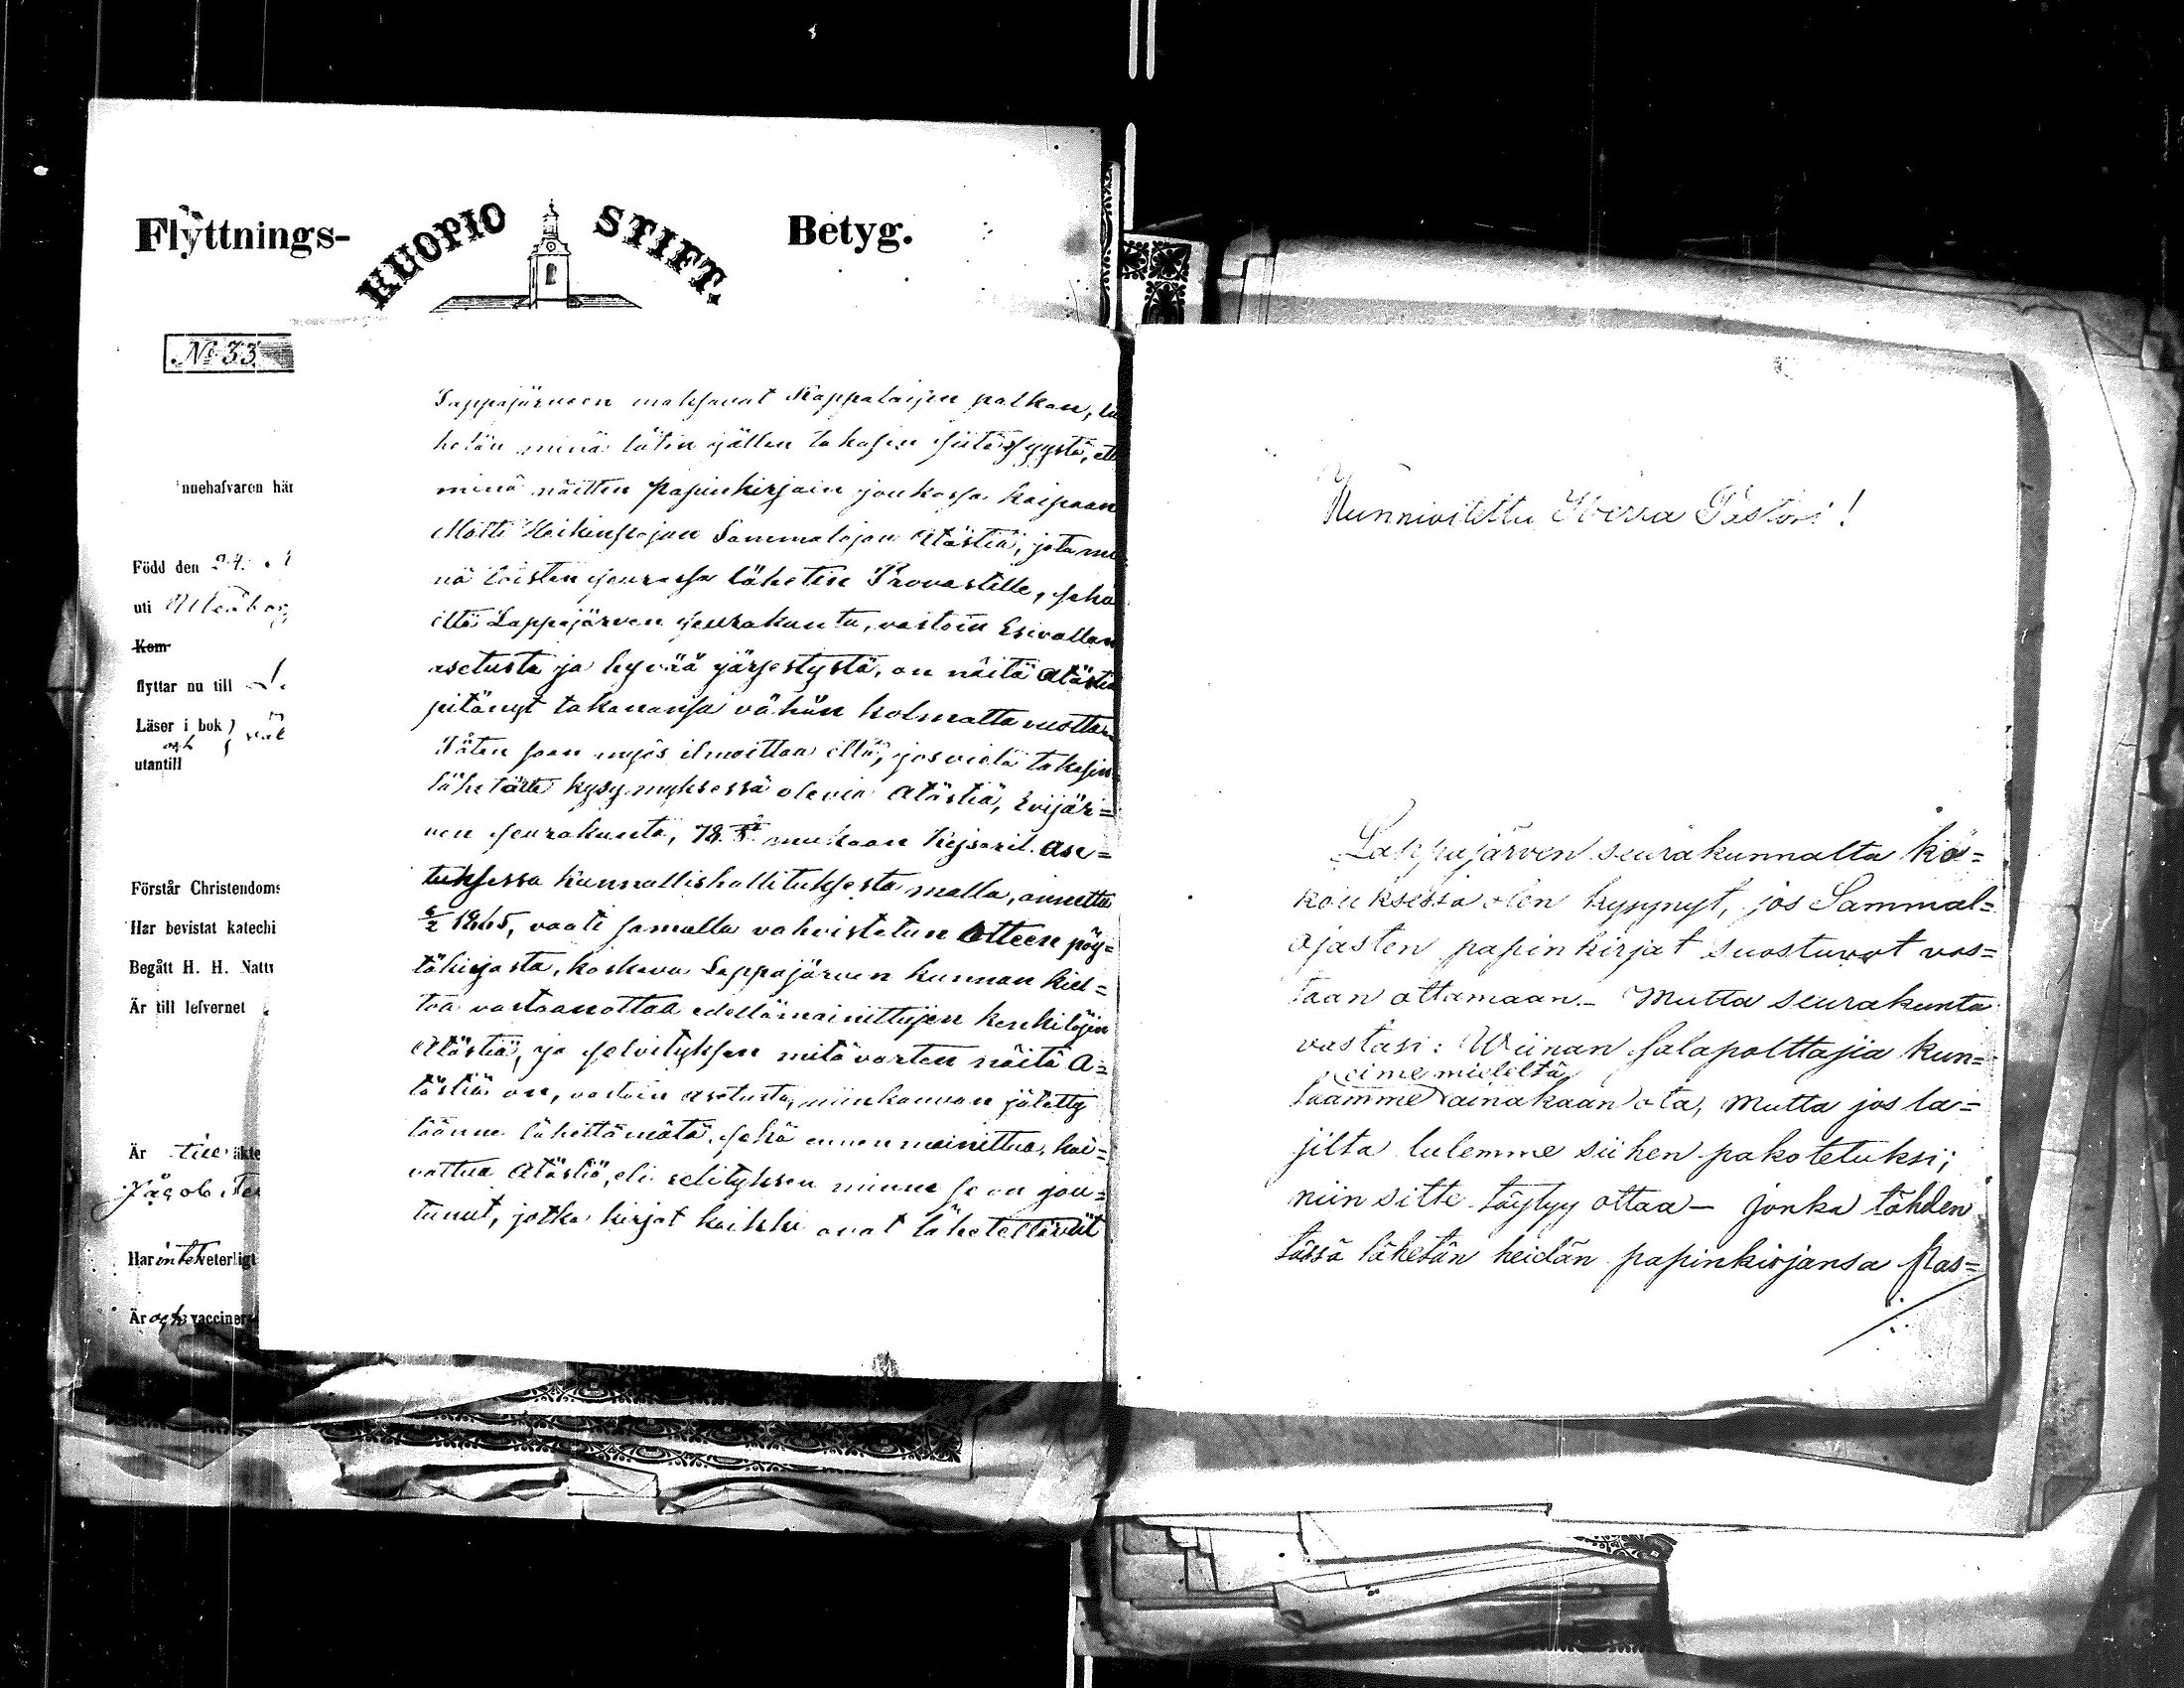 Flyttnings-
KUOPIO STIFT.
Betyg.
№ 33
nnehafvaren här
Född den 24.
uti
Kom
flyttar nu till
Läser i bok
och
utantill
Förstår Christendoms
Har bevistat katechi
Begått H. H. Nattv
Är till lefvernet
Är äkte
Jacob
Har intet veterligt
Är och vaccinera
Lappajärveen maksavat Kappalaisen palkan, lä
hetän minä tätin jällen takasin siitä syystä, ett
minä näitten papinkirjain joukossa kaipaan
Matti Heikinpojan Sammalojan Atästiä, jota mi
nä toisten seurassa lähetin Provastille, sekä
että Lappajärven seurakunta, vastoin Esivallan
asetusta ja hyvää järjestystä, on näitä Atästia
pitänyt takanansa vähän kolmatta vuotta.
Täten saan myös ilmoittaa että, jos vielä takasin
lähetätte kysymyksessä olevia Atästiä, Evijär=
ven seurakunta, 78. § mukaan Kejseril. Ase=
tuksessa kunnallishallituksesta maalla, annettu
6/2 1865, vaatii samalla vahvistetun Otteen pöy=
täkirjasta, koskeva Lappajärven kunnan kiel=
toa vastaanottaa edellämainittujen henkilöjin
Atästiä, ja selvityksen mitä varten näitä A=
tästiä on, vastoin asetusta, niinkauvan jätetty
täänne lähettämätä, sekä ennen mainittua, kai=
vattua Atästiä, eli selityksen minne se on jou=
tunut, jotka kirjat kaikki ovat lähetettävät
Kunnioitettu Herra Pastori!
Lappajärven seurakunnalta ko=
kouksessa olen kysynyt, jos Sammal=
ojasten papinkirjat suostuvat vas=
taan ottamaan. – Mutta seurakunta
vastasi: Wiinan salapolttajia kun=
eime mieleltä
taamme ainakaan ota, Mutta jos la=
jilta tulemme siihen pakotetuksi;
niin sitte täytyy ottaa – jonka tähden
tässä lähetän heidän papinkirjansa Ras=